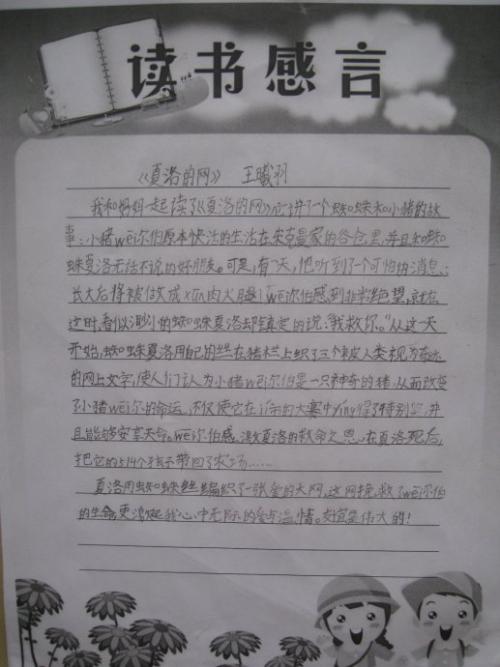 读书感言
《夏洛的网》 王曦羽
我和妈妈一起读了《夏洛的网》它讲了一个蜘蛛和小猪的故
事:小猪wei尔伯原本快活的生活在朱克曼家的谷仓里,并且和蜘
蛛夏洛无话不说的好朋友。可是,有一天,他听到了一个可怕的消息:
长大后将被做成xun肉火腿!wei尔伯感到非常绝望,就在
这时,看似渺小的蜘蛛夏洛却镇定的说:“我救你。”从这一天
开始,蜘蛛夏洛用自己的丝在猪栏上织了三个被人类视为奇迹
的网上文字,使人们认为小猪wei尔伯是一只神奇的猪,从而改变
了小猪wei尔的命运。不仅使它在 的大赛中ying得了特别 ,并
且能够安享天命。wei尔伯感激夏洛的救命之恩。在夏洛死后,
把它的514个孩子带回了农场……
夏洛用蜘蛛丝编织了一张爱的大网,这网挽救了wei尔伯
的生命,更激起我心中无际的爱与温情。友谊是伟大的!